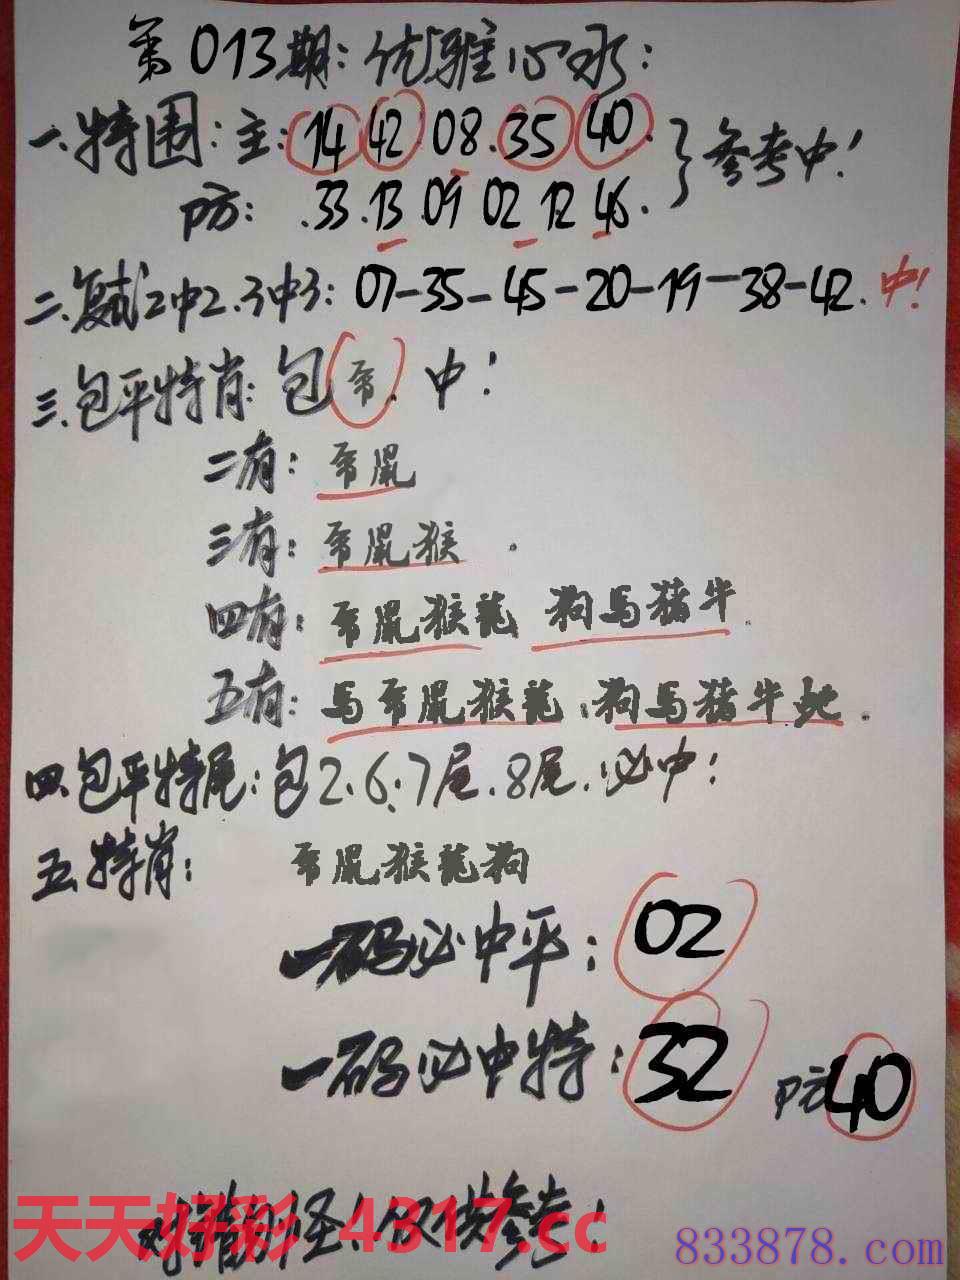 第013期：优雅心水：
一.特围：主：14 42 08.35 40.}参考中！
防：.33.13 09 02 12 46.
二.复式2中2.3中3：07-35-45-20-19-38-42.中！
三.包平特肖：包 中！
二有： 鼠
三有： 鼠猴.
四有： 鼠猴龍 狗马猪牛.
五有：马 鼠猴龍.狗马猪牛蛇.
四.包平特尾：包2.6.7尾.8尾.必中！
五.特肖： 鼠猴龍狗
一码必中平：02
一码必中特：32 防40
错 怪！仅供参考！
天天好彩 4317.cc
833878.com